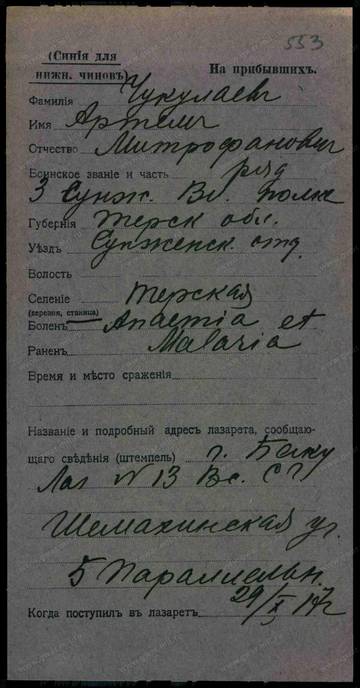 553
(Синія для
нижн. чиновъ)
На прибывшихъ.
Фамилія Чукулаевъ
Имя Артемъ
Отчество Митрофанович
Воинское званіе и часть ряд
3 Сунж. Вл. полк
Губернія Терск обл.
Уѣздъ Сунженск. отд.
Волость
Селеніе Терская
(деревня, станица)
Боленъ — Anaemia et
Раненъ Malaria
Время и мѣсто сраженія
Названіе и подробный адресъ лазарета, сообщаю-
щаго свѣдѣнія (штемпель) г. Баку
Лаз № 13 Вс. С Г
Шемахинская уг.
5 Параллельн.
Когда поступил въ лазаретъ 29/X 17 г